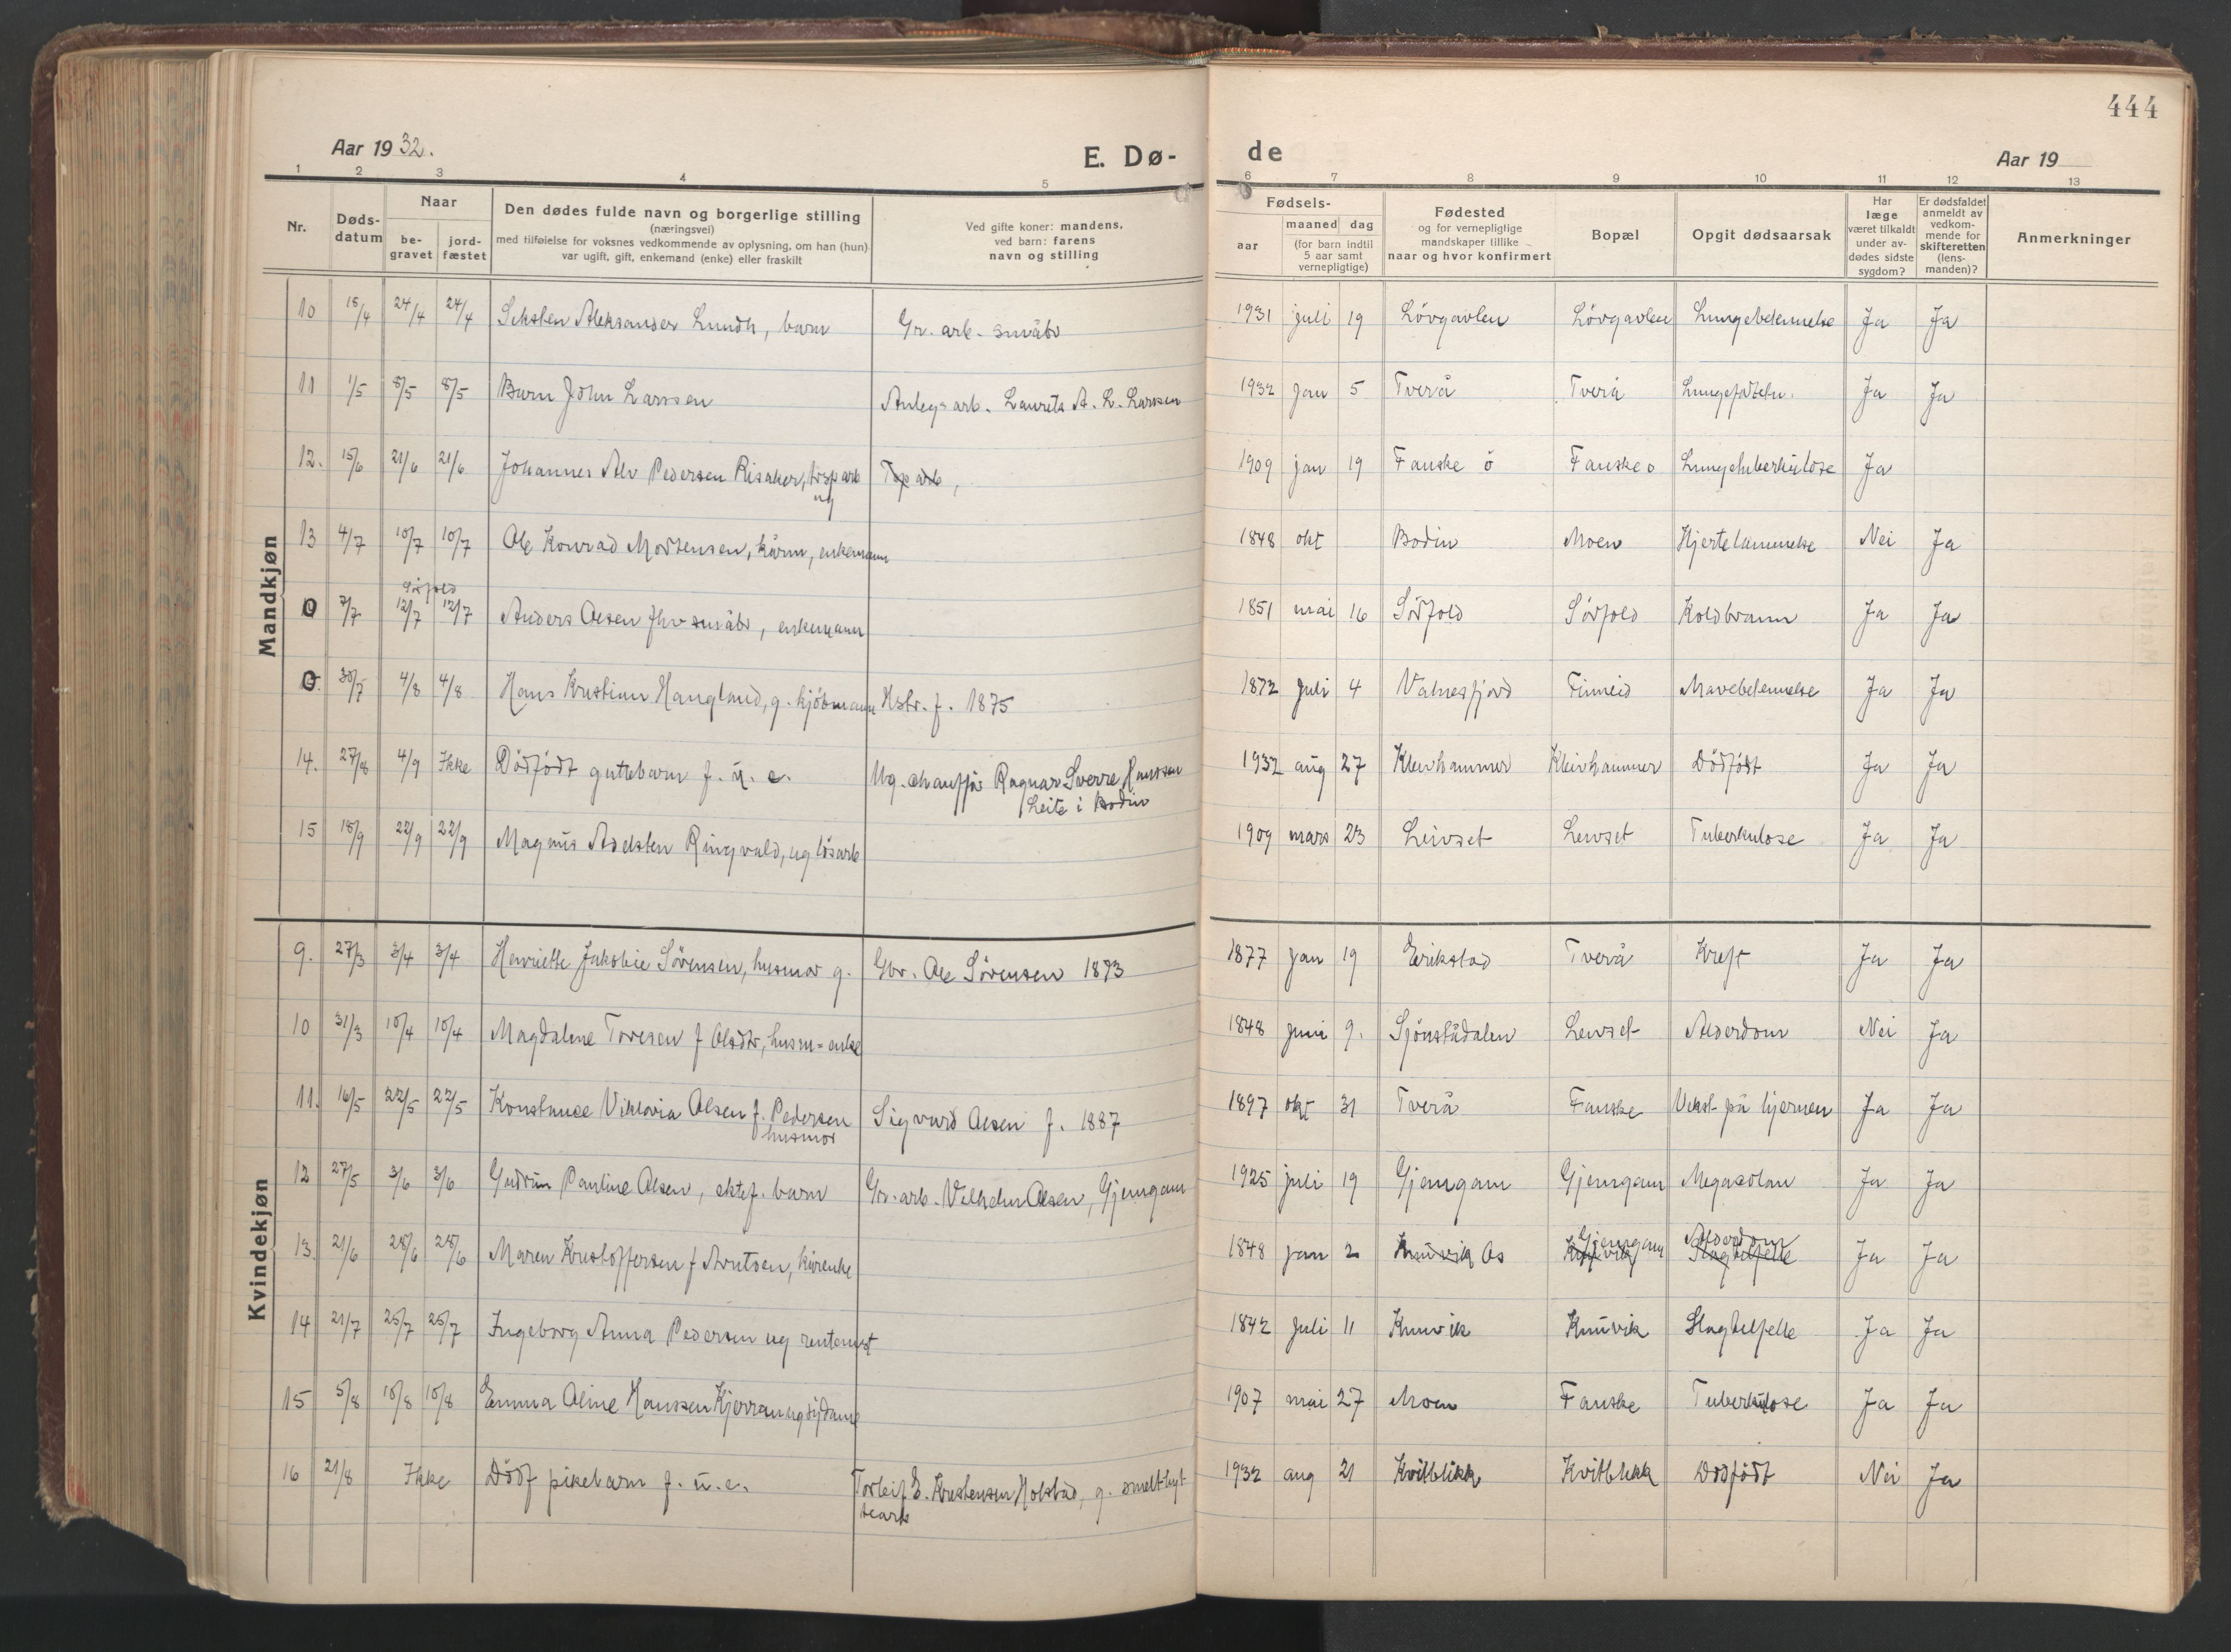 444
Aar 1932.
E. Dø-
de
Aar 19
1 2 3 4 5 6 7 8 9 10 11 12 13
Nr.
Døds-
datum
Naar
be-
gravet
jord-
fæstet
Den dødes fulde navn og borgerlige stilling
(næringsvei)
med tilføielse for voksnes vedkommende av oplysning, om han (hun)
var ugift, gift, enkemand (enke) eller fraskilt
Ved gifte koner: mandens,
ved barn: farens
navn og stilling
Fødsels-
aar
maaned dag
(for barn indtil
5 aar samt
vernepligtige)
Fødested
og for vernepligtige
mandskaper tillike
naar og hvor konfirmert
Bopæl
Opgit dødsaarsak
Har
læge
været tilkaldt
under av-
dødes sidste
sygdom?
Er dødsfaldet
anmeldt av
vedkom-
mende for
skifteretten
(lens-
manden)?
Anmerkninger
Mandkjøn
10 18/4 24/4 24/4 Seksten Aleksander Lundh, barn Gr. arb. småbr 1931 juli 19 Lövgavlen Lövgavlen Lungebetennelse Ja Ja
11 1/5 8/5 8/5 Barn John Larssen Anlegsarb. Laurets A. L. Larssen 1932 jan 5 Tverå Tverå Ja Ja
12. 15/6 21/6 21/6 Johannes Alv Pedersen Risaker, ug 1909 jan 19 Fauske ö Fauske ö Lungetuberkulose Ja
13 4/7 10/7 10/7 Ole Konrad Mortensen, kårm, enkemann 1848 okt Bodin Moen Hjertelammelse Nei Ja
Sörfold
0 7/7 12/7 12/7 Anders Olsen fhv småbr, enkemann 1851 mai 16 Sörfold Sörfold Koldbrann Ja Ja
0 30/7 4/8 4/8 Hans Kristian Haugland, g. kjöbmann Hstr. f. 1875 1872 juli 4 Valnesfjord Finneid Mavebetennelse Ja Ja
14. 27/8 4/9 Ikke Dödfödt guttebarn f. u. e. Ug. chaufför Ragnar Sverre Hanssen
Leite i Bodin
1932 aug 27 Kleivhammer Kleivhammer Dödfödt Ja Ja
15 18/9 22/9 22/9 Magnus Adelsten Ringvald, ug lösarb 1909 mars 23 Leivset Leivset Tuberkulose Ja Ja
Kvindekjøn
9. 27/3 3/4 3/4 Henriette Jakobie Sörensen, husmor g. Gbr. Ole Sörensen 1873 1877 jan 19 Erikstad Tverå Kreft Ja Ja
10 31/3 10/4 10/4 Magdalene Toresen f Olsdtr, husm=enke 1848 juni 9. Sjönstådalen Leivset Alderdom Nei Ja
11. 16/5 22/5 22/5 Konstance Viktoria Olsen f. Pedersen
husmor
Sigvard Olsen f. 1887 1897 okt 31 Tverå Fauske Vekst på hjernen Ja Ja
12 27/5 3/6 3/6 Gudrun Pauline Olsen, ektef. barn Gr. arb. Vilhelm Olsen, Gjemgam 1925 juli 19 Gjemgam Gjemgam Megacolon Ja Ja
13. 21/6 28/6 28/6 Maren Kristoffersen f Arntsen, kårenke 1848 jan 2 Knuvik Os Knuvik Gjemgam Slagtilfelle Alderdom Ja Ja
14 21/7 25/7 25/7 Ingeborg Anna Pedersen ug rentenist 1842 juli 11 Knuvik Knuvik Slagtilfelle Ja Ja
15 5/8 10/8 10/8 Emma Oline Hanssen Kjerran ug sydame 1907 mai 27 Moen Fauske Tuberkulose Ja Ja
16 21/8 Ikke Dödf pikebarn f. u. e. Torleif E. Kristensen Holstad, g. smelthyt
tearb
1932 aug 21 Kvitblikk Kvitblikk Dödfödt Nei Ja